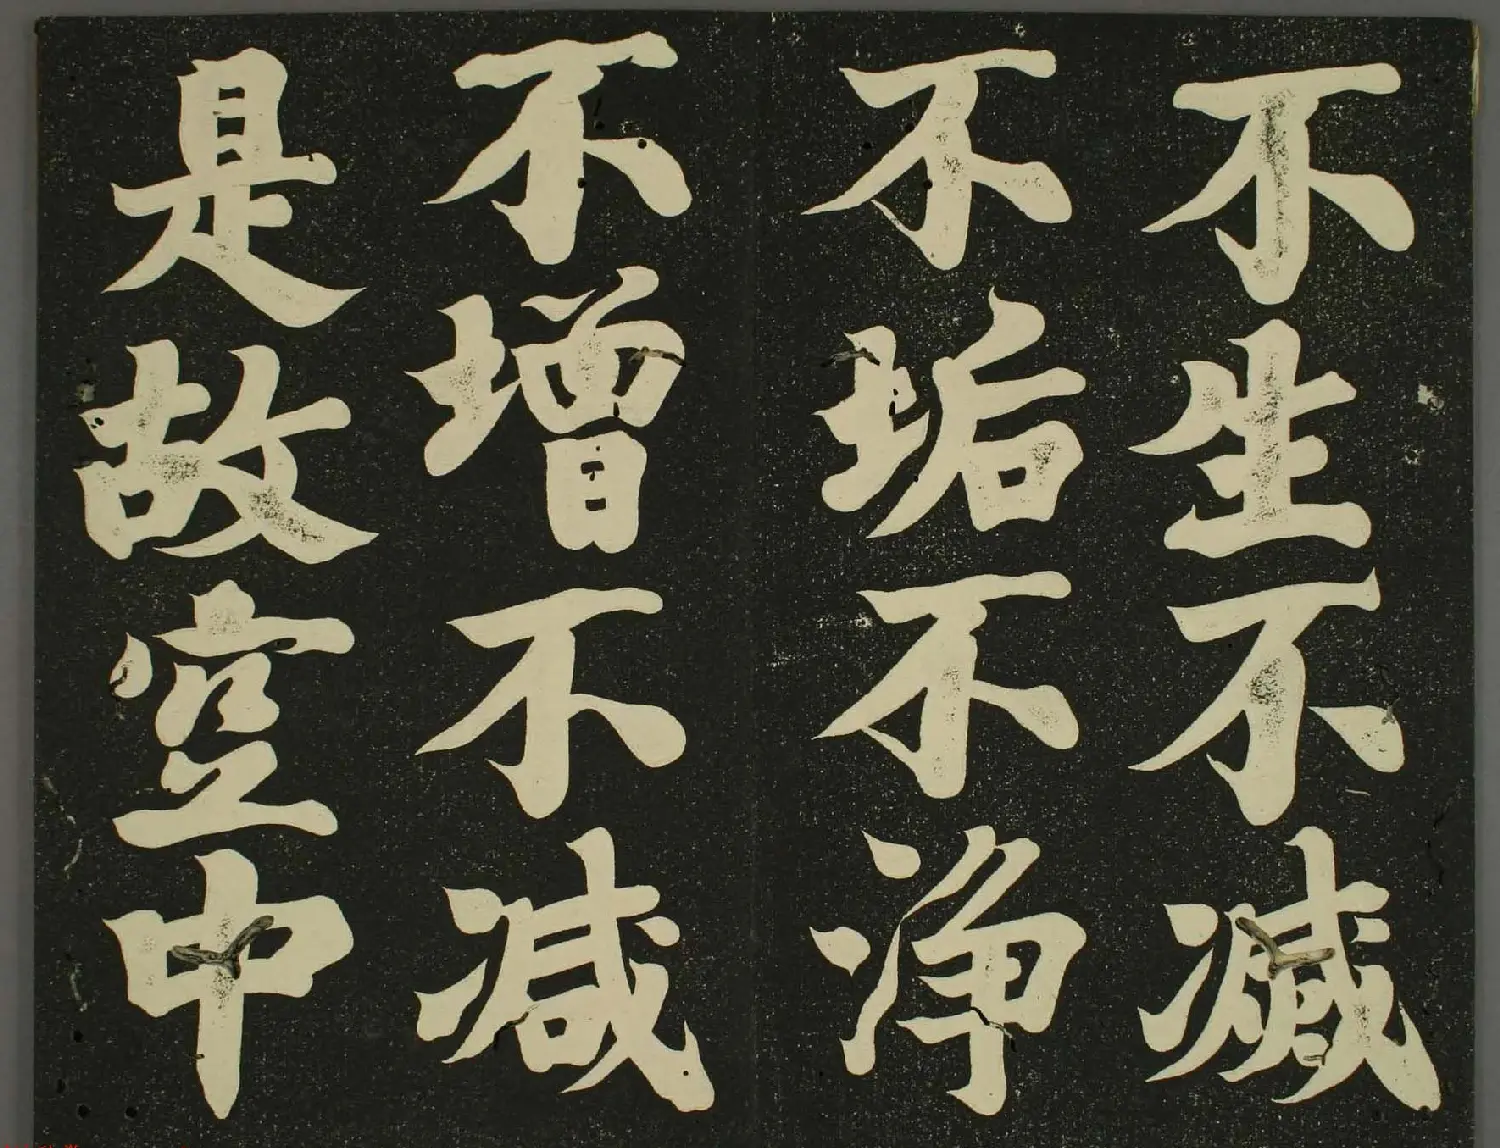 不生不滅
不垢不淨
不增不減
是故空中